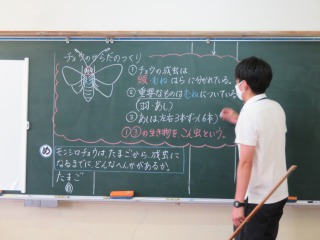 チョウのからだのつくり
①チョウの成虫は
頭 むね はらに分かれている。
②重要なものはむねについている
(羽・あし)
③あしは左右3本ずつ(6本)
①③の生き物をこん虫という。
め
モンシロチョウは、たまごから、成虫に
なるまでに、どんなへんかがあるか。
たまご